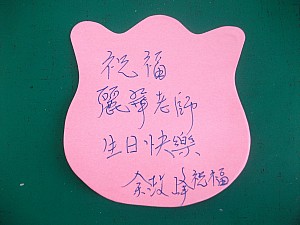 祝福
麗翠老師
生日快樂
余政峰祝福